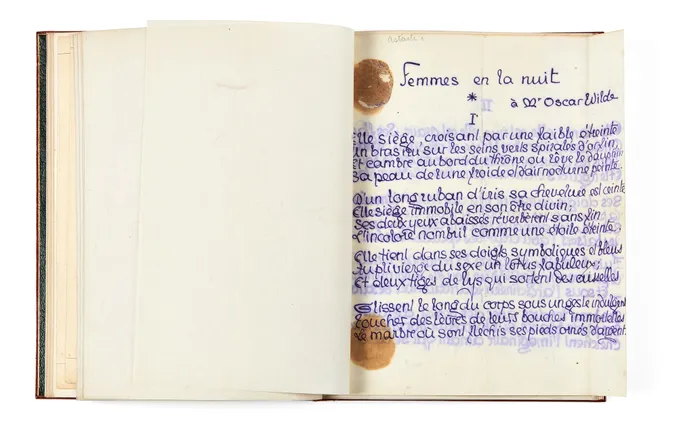 Femmes en la nuit
*
à Mr Oscar Wilde
I
Elle siège, croisant par une faible étreinte
Un bras bleu sur les seins verts spiralés d'or fin,
Et cambre au bord du trône où rêve le dauphin
Sa peau de lune froide et d'air nocturne peinte.
D'un long ruban d'iris sa chevelure est ceinte
Elle siège immobile en son être divin;
Ses deux yeux abaissés réverbèrent sans fin
L'incolore nombril comme une étoile éteinte.
Elle tient dans ses doigts symboliques et bleus
Au pli vierge du sexe un lotus fabuleux;
Et deux tiges de lys qui sortent des aisselles
Glissent le long du corps sous un geste indulgent
Toucher des lèvres de leurs bouches immortelles
Le marbre où sont fléchis ses pieds ornés d'argent.